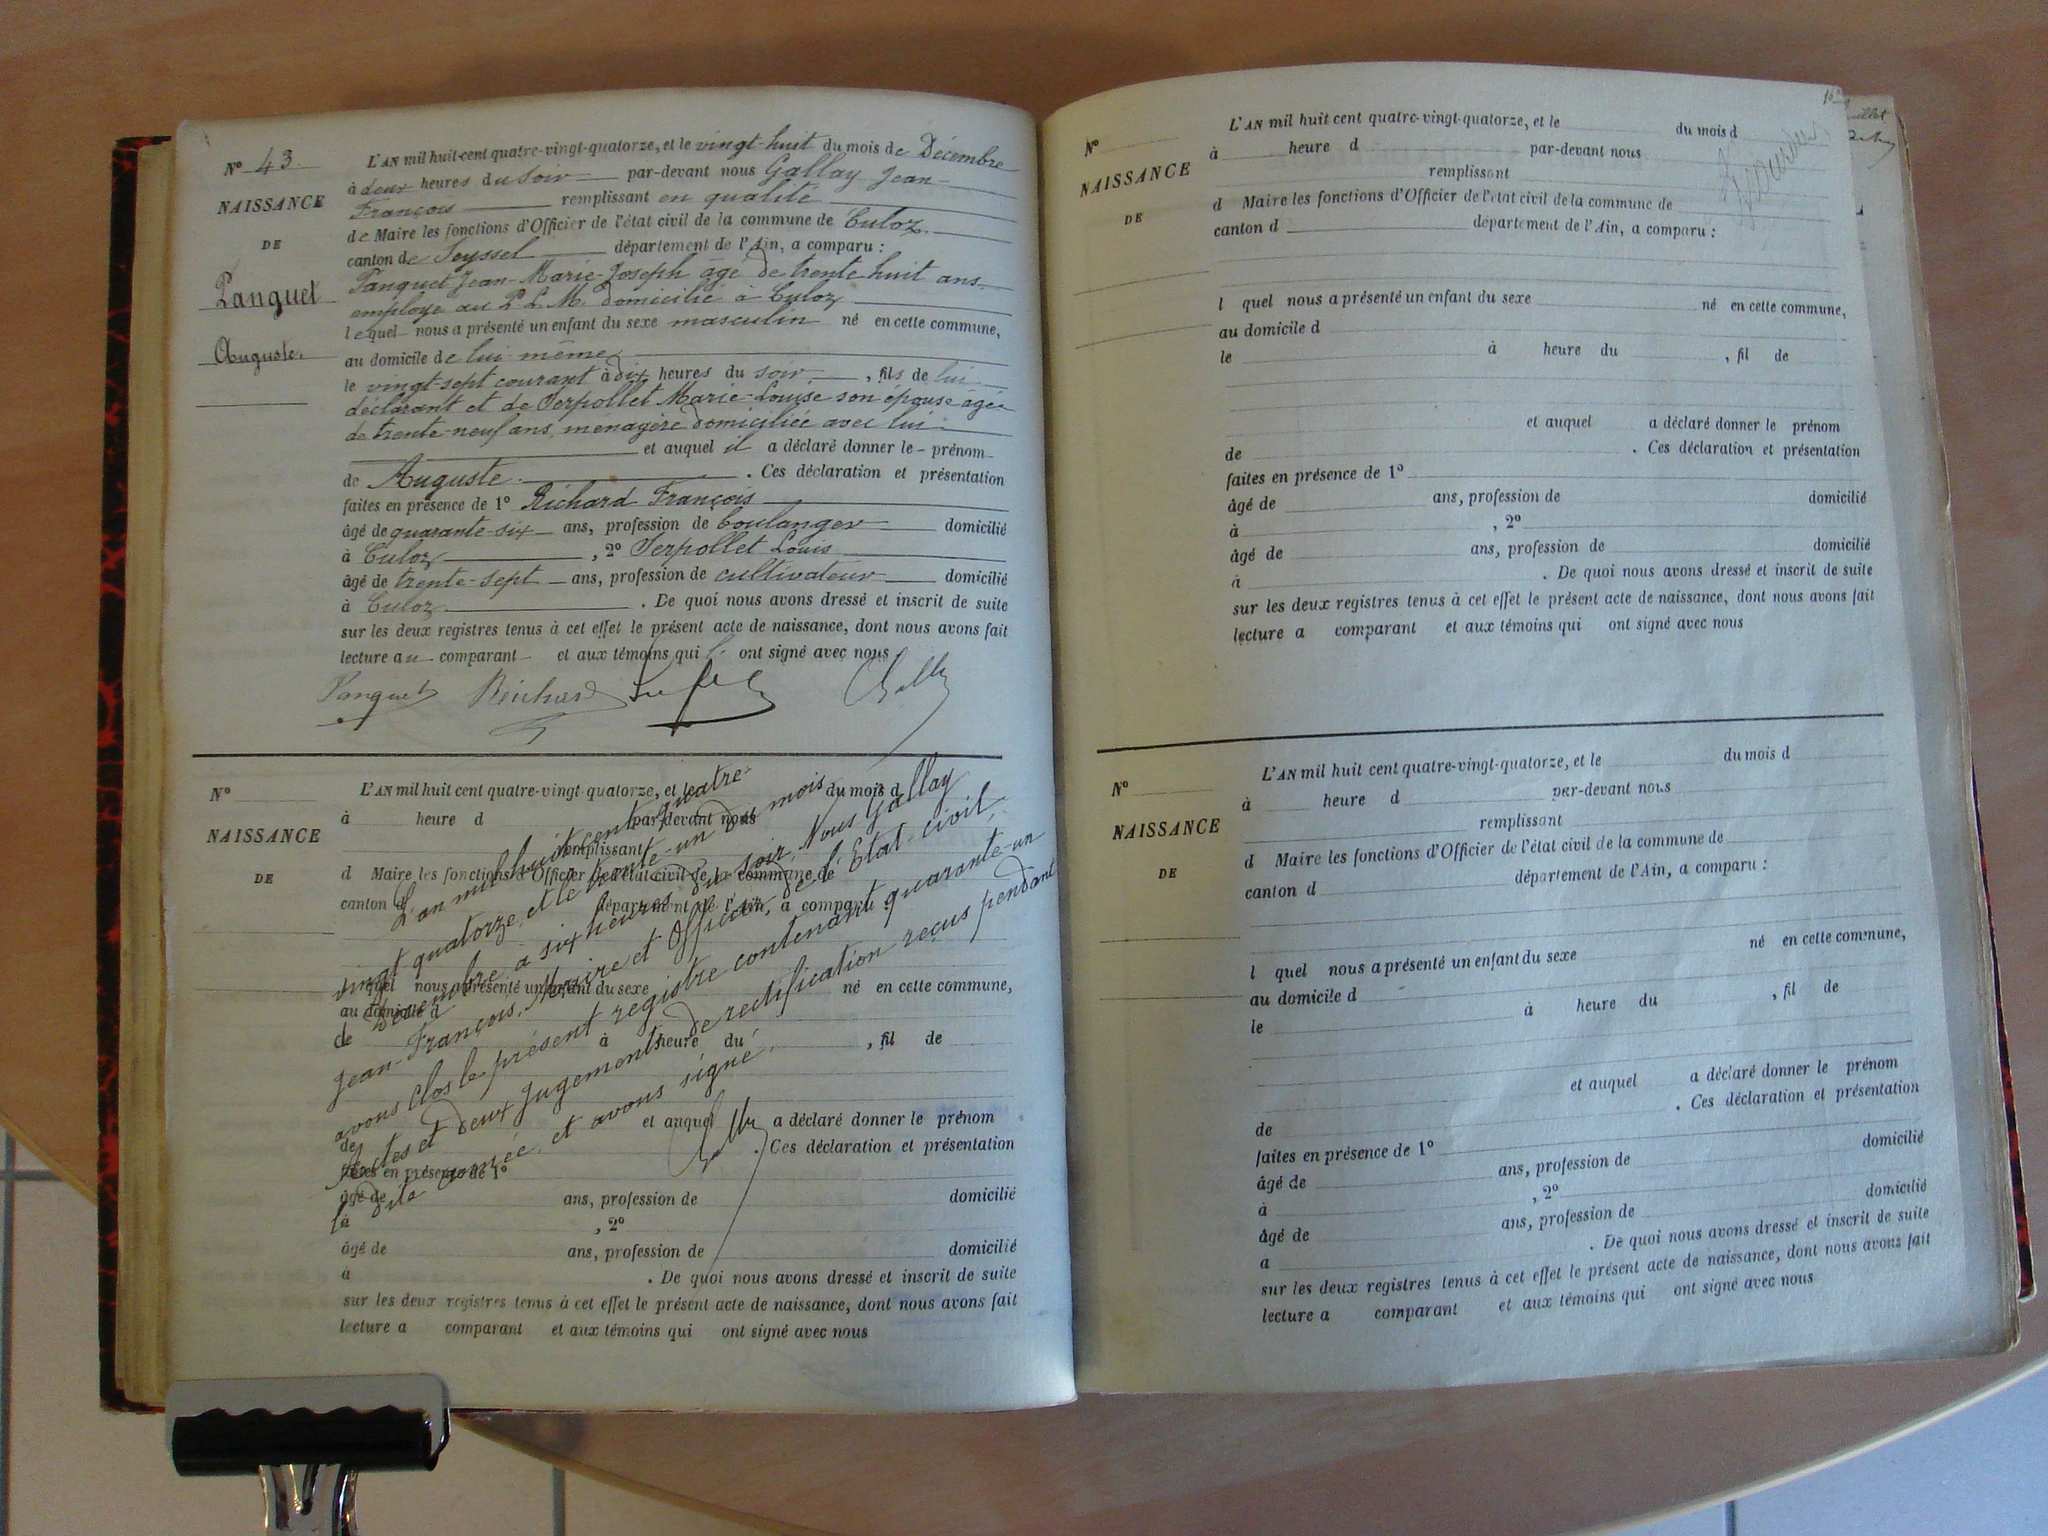 N° 43.
NAISSANCE
DE
Panguet
Auguste.
L'AN mil huit cent quatre-vingt-quatorze, et le vingt-huit du mois de Décembre
à deux heures du soir par-devant nous Gallay Jean-
François remplissant en qualité
de Maire les fonctions d'Officier de l'état civil de la commune de Culoz.
canton de Seyssel département de l'Ain, a comparu :
Panguet Jean-Marie-Joseph âgé de trente huit ans
employé au P.L.M. domicilié à Culoz
lequel nous a présenté un enfant du sexe masculin né en cette commune,
au domicile de lui-même
le vingt-sept courant à dix heures du soir, fils de lui
déclarant et de Serpollet Marie-Louise son épouse âgée
de trente-neuf ans, menagère domiciliée avec lui
et auquel il a déclaré donner le prénom
de Auguste. Ces déclaration et présentation
faites en présence de 1° Richard François
âgé de quarante-six ans, profession de boulanger domicilié
à Culoz, 2° Serpollet Louis
âgé de trente-sept ans, profession de cultivateur domicilié
à Culoz. De quoi nous avons dressé et inscrit de suite
sur les deux registres tenus à cet effet le présent acte de naissance, dont nous avons fait
lecture au comparant et aux témoins qui ont signé avec nous
Panguet Richard
N°
NAISSANCE
DE
L'AN mil huit cent quatre-vingt-quatorze, et le du mois d
à heure d par-devant nous
remplissant
d Maire les fonctions d'Officier de l'état civil de la commune de
canton d département de l'Ain, a comparu :
l quel nous a présenté un enfant du sexe né en cette commune,
au domicile d
le à heure du , fil de
et auquel a déclaré donner le prénom
de . Ces déclaration et présentation
faites en présence de 1°
âgé de ans, profession de domicilié
à , 2°
âgé de ans, profession de domicilié
à . De quoi nous avons dressé et inscrit de suite
sur les deux registres tenus à cet effet le présent acte de naissance, dont nous avons fait
lecture a comparant et aux témoins qui ont signé avec nous
L'an mil huit cent quatre-
vingt quatorze, et le trente-un du mois
de Décembre à six heures du soir, Nous Gallay
Jean-François, Maire et Officier de l'Etat-civil,
avons clos le présent registre contenant quarante-un
actes et deux jugements de rectification reçus pendant
la dite année, et avons signé.
N°
NAISSANCE
DE
L'AN mil huit cent quatre-vingt-quatorze, et le du mois d
à heure d par-devant nous
remplissant
d Maire les fonctions d'Officier de l'état civil de la commune de
canton d département de l'Ain, a comparu :
l quel nous a présenté un enfant du sexe né en cette commune,
au domicile d
le à heure du , fil de
et auquel a déclaré donner le prénom
de . Ces déclaration et présentation
faites en présence de 1°
âgé de ans, profession de domicilié
à , 2°
âgé de ans, profession de domicilié
à . De quoi nous avons dressé et inscrit de suite
sur les deux registres tenus à cet effet le présent acte de naissance, dont nous avons fait
lecture a comparant et aux témoins qui ont signé avec nous
N°
NAISSANCE
DE
L'AN mil huit cent quatre-vingt-quatorze, et le du mois d
à heure d par-devant nous
remplissant
d Maire les fonctions d'Officier de l'état civil de la commune de
canton d département de l'Ain, a comparu :
l quel nous a présenté un enfant du sexe né en cette commune,
au domicile d
le à heure du , fil de
et auquel a déclaré donner le prénom
de . Ces déclaration et présentation
faites en présence de 1°
âgé de ans, profession de domicilié
à , 2°
âgé de ans, profession de domicilié
a . De quoi nous avons dressé et inscrit de suite
sur les deux registres tenus à cet effet le présent acte de naissance, dont nous avons fait
lecture a comparant et aux témoins qui ont signé avec nous